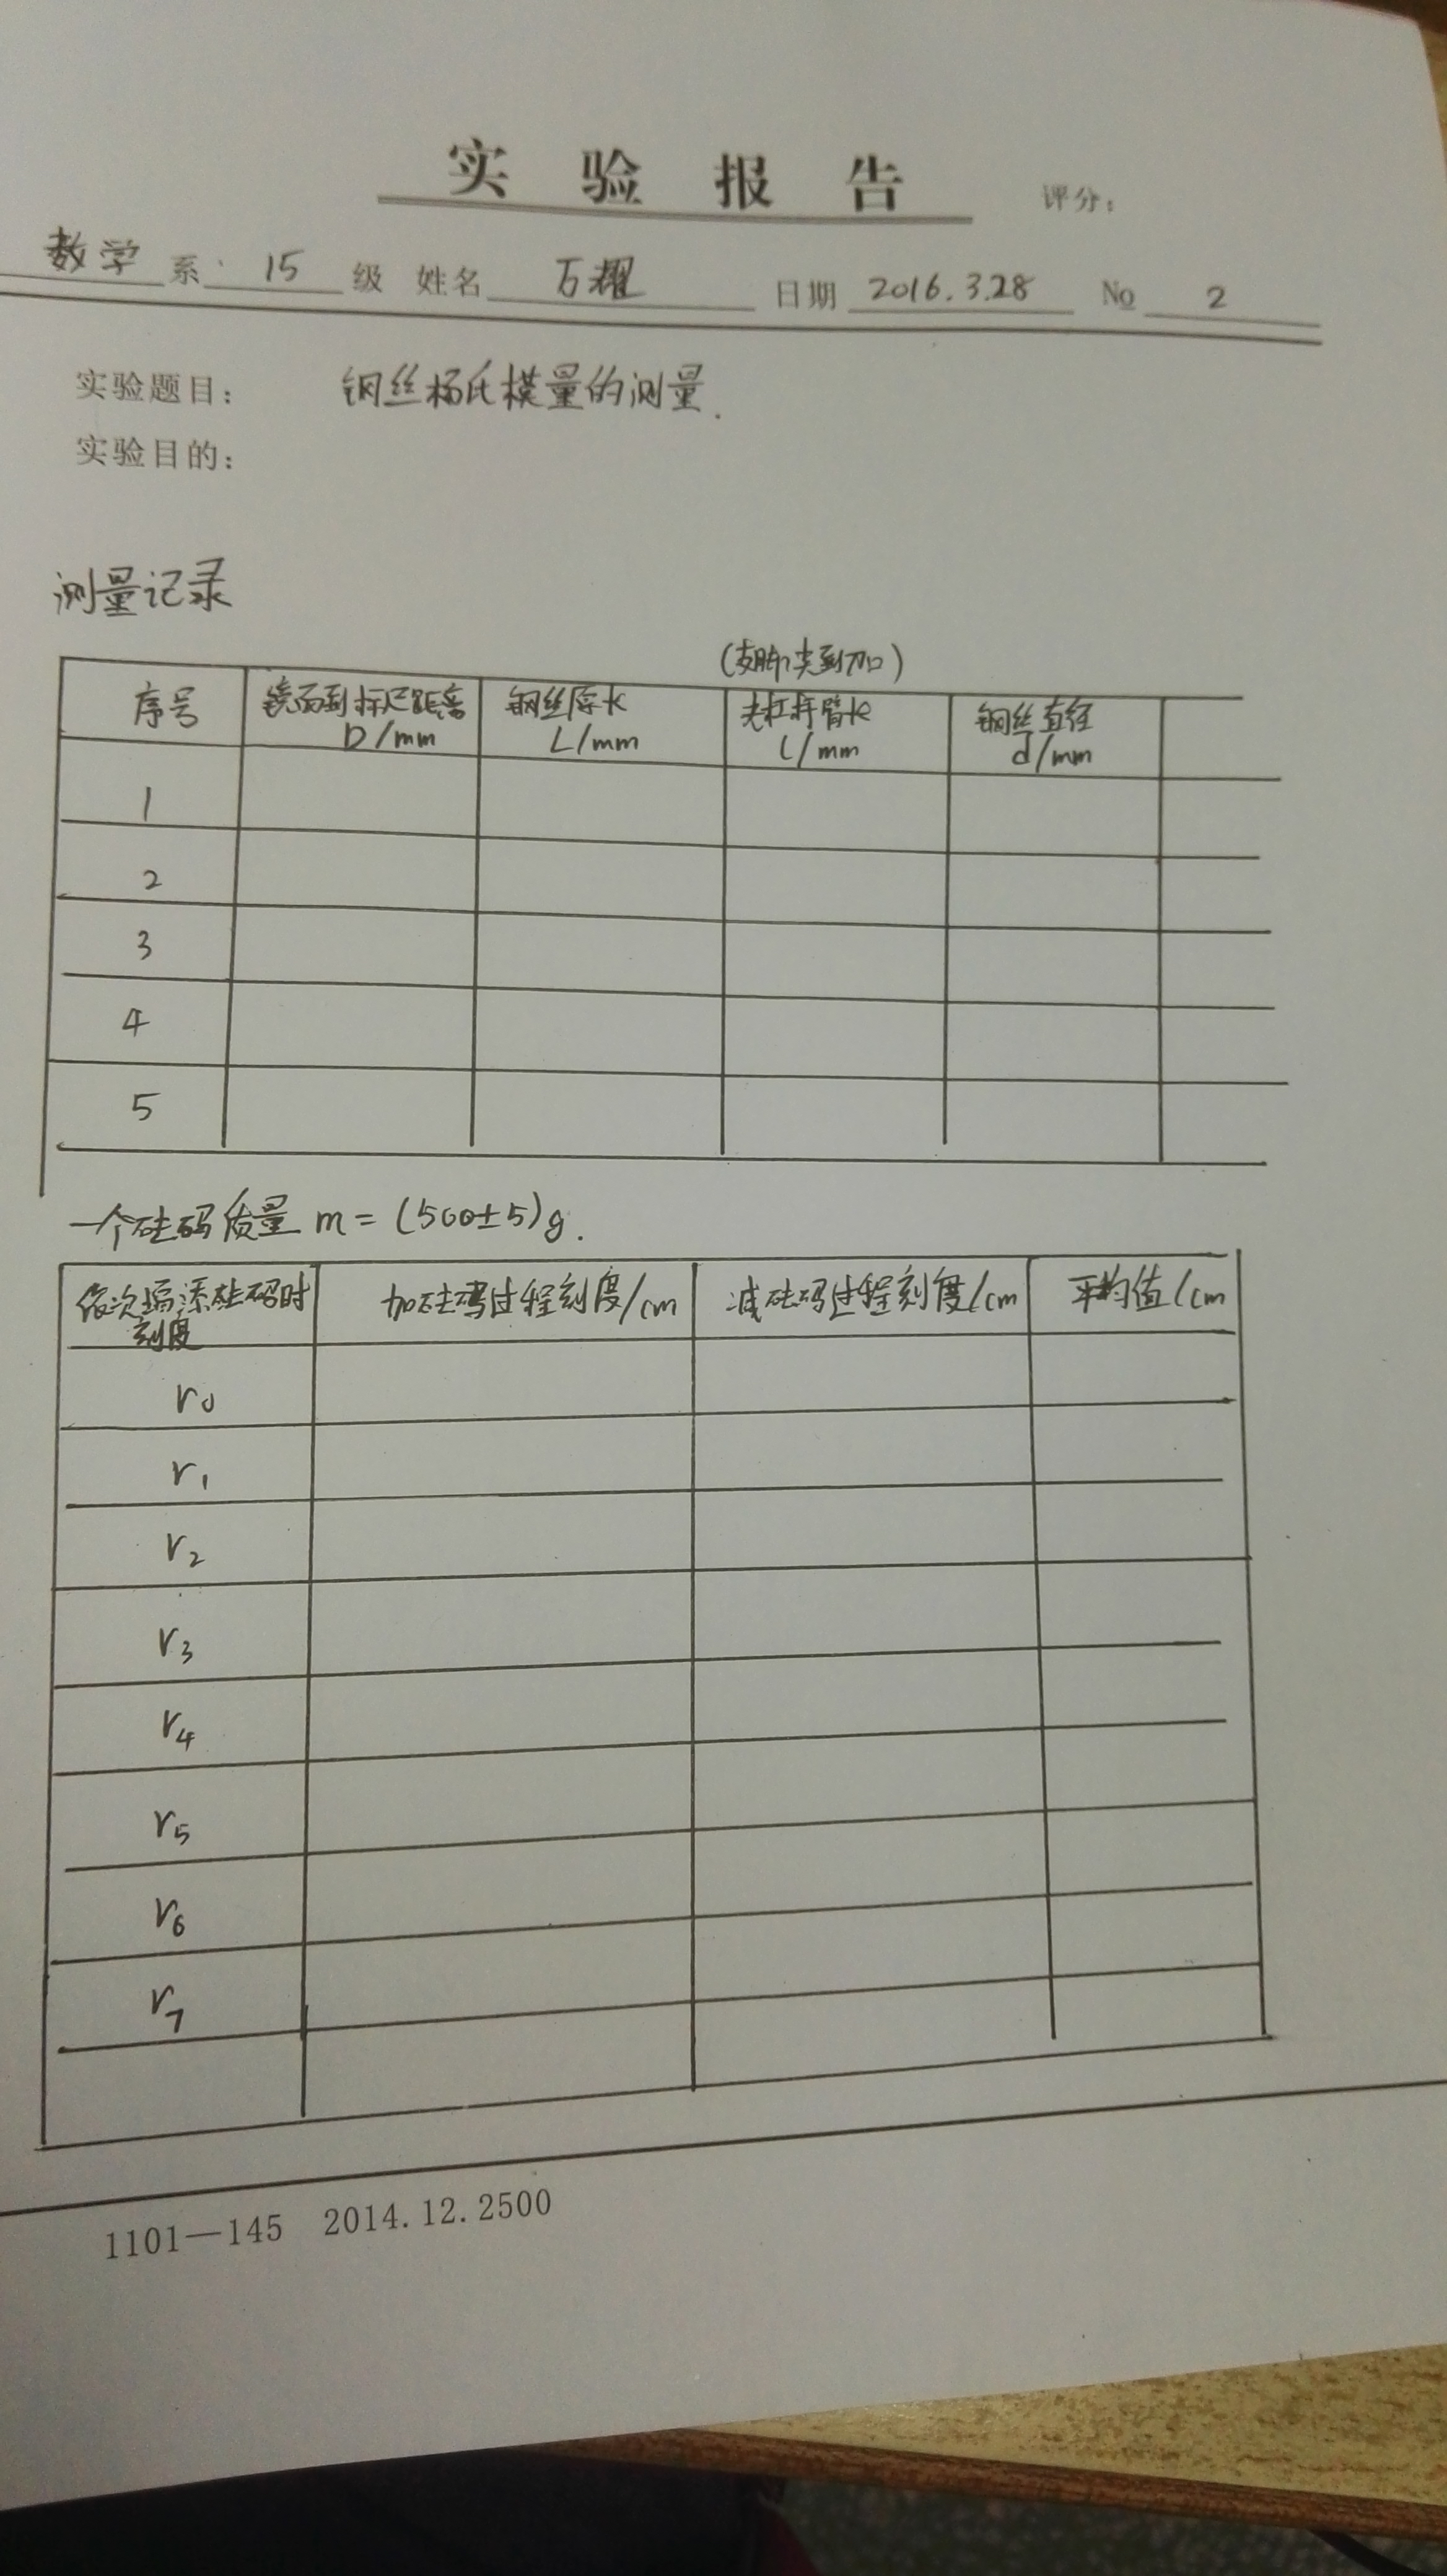 实验报告 评分:
数学 系 15 级 姓名 万耀 日期 2016.3.28 No 2
实验题目: 钢丝杨氏模量的测量.
实验目的:
测量记录
(支脚尖到刀口)
序号 镜面到标尺距离 D/mm 钢丝原长 L/mm 光杠杆臂长 l/mm 钢丝直径 d/mm
1
2
3
4
5
一个砝码质量 m = (500±5)g.
依次增添砝码时刻度 加砝码过程刻度/cm 减砝码过程刻度/cm 平均值/cm
r0
r1
r2
r3
r4
r5
r6
r7
1101—145 2014.12.2500